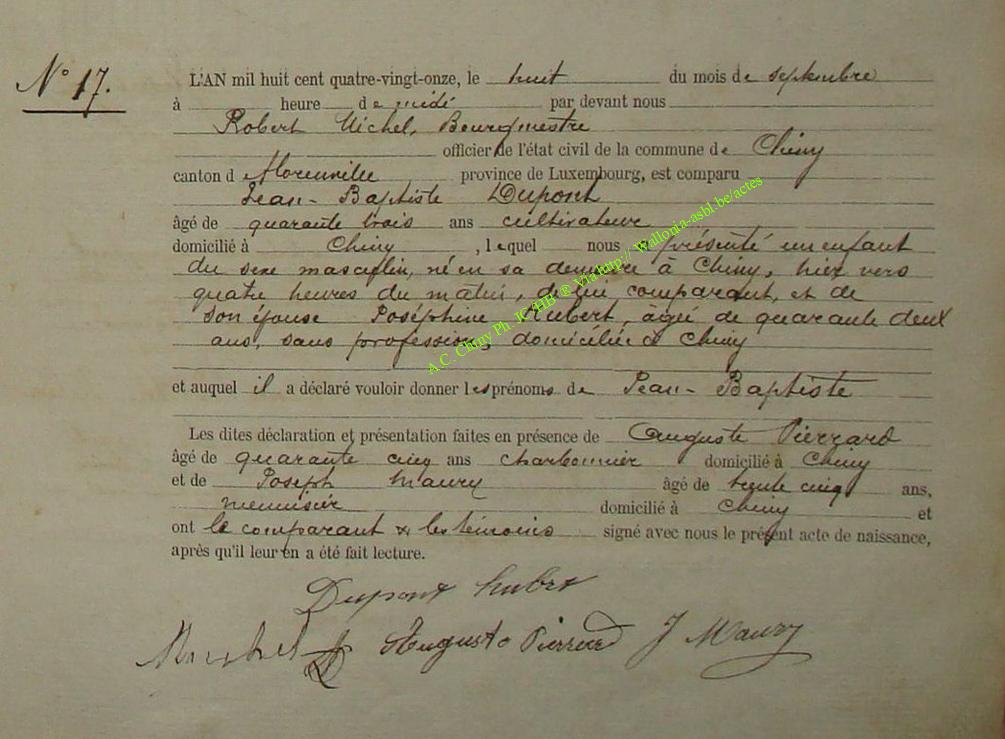 N° 17.
L'AN mil huit cent quatre-vingt-onze, le huit du mois de septembre
à heure de midi par devant nous
Robert Michel, Bourgmestre
officier de l'état civil de la commune de Chiny
canton d Florenville province de Luxembourg, est comparu
Jean-Baptiste Dupont
âgé de quarante trois ans cultivateur
domicilié à Chiny, lequel nous a présenté un enfant
du sexe masculin, né en sa demeure à Chiny, hier vers
quatre heures du matin, de lui comparant, et de
son épouse Joséphine Hubert, agée de quarante deux
ans, sans profession, domiciliée à Chiny
et auquel il a déclaré vouloir donner les prénoms de Jean-Baptiste
Les dites déclaration et présentation faites en présence de Auguste Pierrard
âgé de quarante cinq ans charbonnier domicilié à Chiny
et de Joseph Maury âgé de trente cinq ans,
menuisier domicilié à Chiny et
ont le comparant & les témoins signé avec nous le présent acte de naissance,
après qu'il leur en a été fait lecture.
Dupont hubert
Michel R Auguste Pierrard J Maury
A.C. Chiny Ph. JC/HB ® Via http://Wallonia-asbl.be/actes